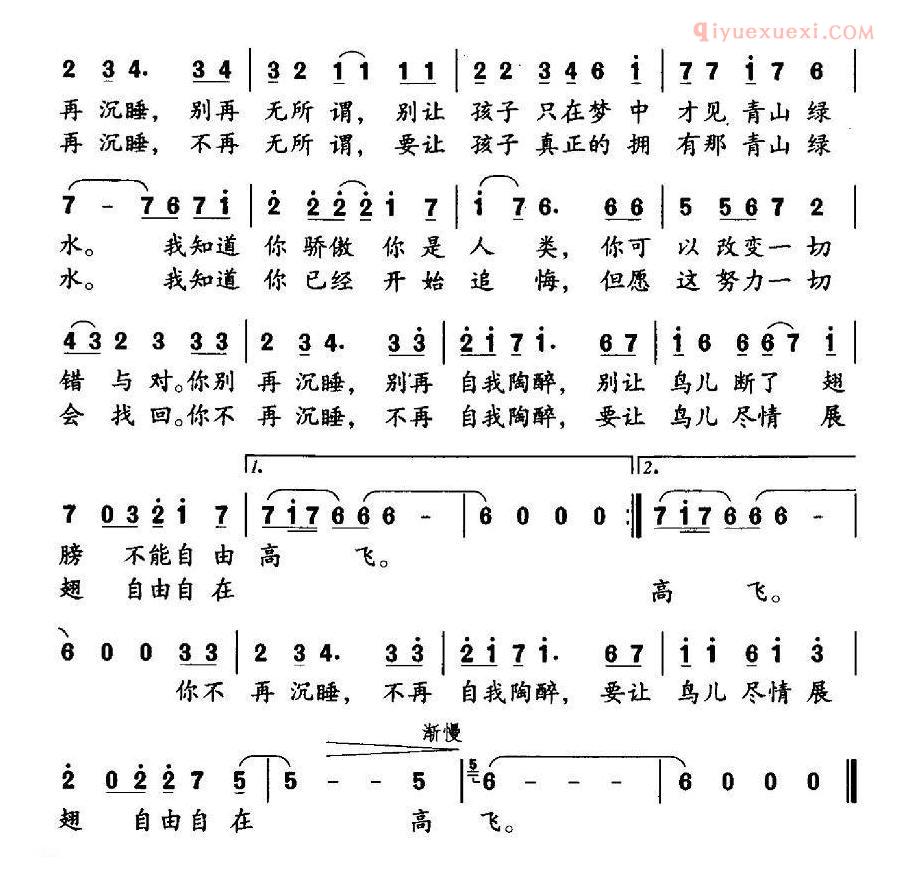 qiyuexuexi.com
2 3 4. 3 4 | 3 2 1 1 1 1 | 2 2 3 4 6 i | 7 7 i 7 6 |
再沉睡，别再 无所谓，别让 孩子只在梦中 才见青山绿
再沉睡，不再 无所谓，要让 孩子真正的拥 有那青山绿
7 - 7 6 7 i | 2 2 2 2 i 7 | i 7 6. 6 6 | 5 5 6 7 2 |
水。 我知道 你骄傲你是 人类，你可 以改变一切
水。 我知道 你已经开始 追悔，但愿 这努力一切
4 3 2 3 3 3 | 2 3 4. 3 3 | 2 i 7 i. 6 7 | i 6 6 6 7 i |
错与对。你别 再沉睡，别再 自我陶醉，别让 鸟儿断了翅
会找回。你不 再沉睡，不再 自我陶醉，要让 鸟儿尽情展
1. 2.
7 0 3 2 i 7 | 7 i 7 6 6 6 - | 6 0 0 0 :| 7 i 7 6 6 6 - |
膀 不能自由 高飞。
翅 自由自在 高飞。
6 0 0 3 3 | 2 3 4. 3 3 | 2 i 7 i. 6 7 | i i 6 i 3 |
你不 再沉睡，不再 自我陶醉，要让 鸟儿尽情展
渐慢
2 0 2 2 7 5 | 5 - - 5 | 5 6 - - - | 6 0 0 0 ‖
翅 自由自在 高飞。